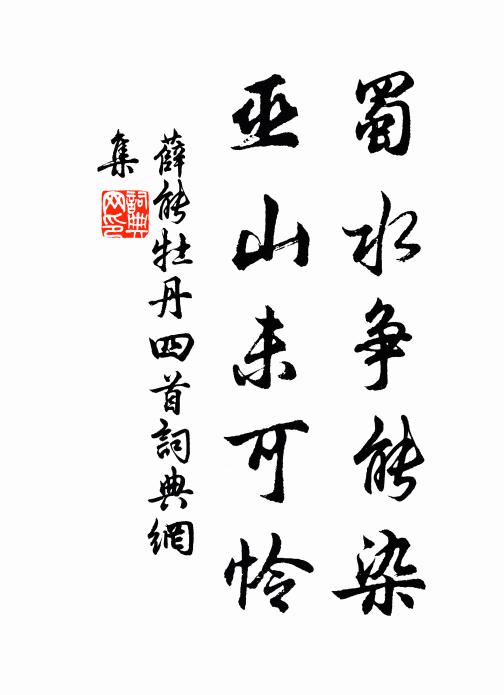 蜀水争能染
巫山未可怜
薛能牡丹四首詞典網
集
詞典
网印